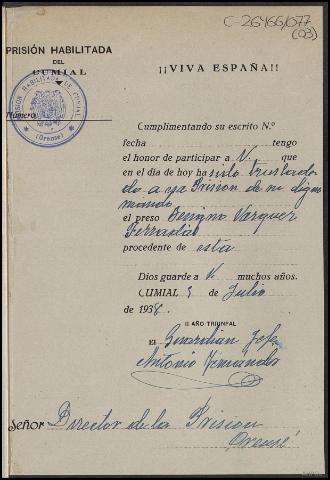 C-26466/077
(03)
PRISIÓN HABILITADA
DEL
CUMIAL
¡¡VIVA ESPAÑA!!
PRISION HABILITADA DE CUMIAL
(Orense)
Número
Cumplimentando su escrito N.º
fecha tengo
el honor de participar a V. que
en el día de hoy ha sido traslada
do a esa Prision de su digno
mando
el preso Benigno Vazquez
Ferradas
procedente de esta
Dios guarde a V. muchos años.
CUMIAL 3 de Julio
de 1938.
II AÑO TRIUNFAL
El Guardian Jefe
Antonio
SEÑOR Director de la Prision
Orense